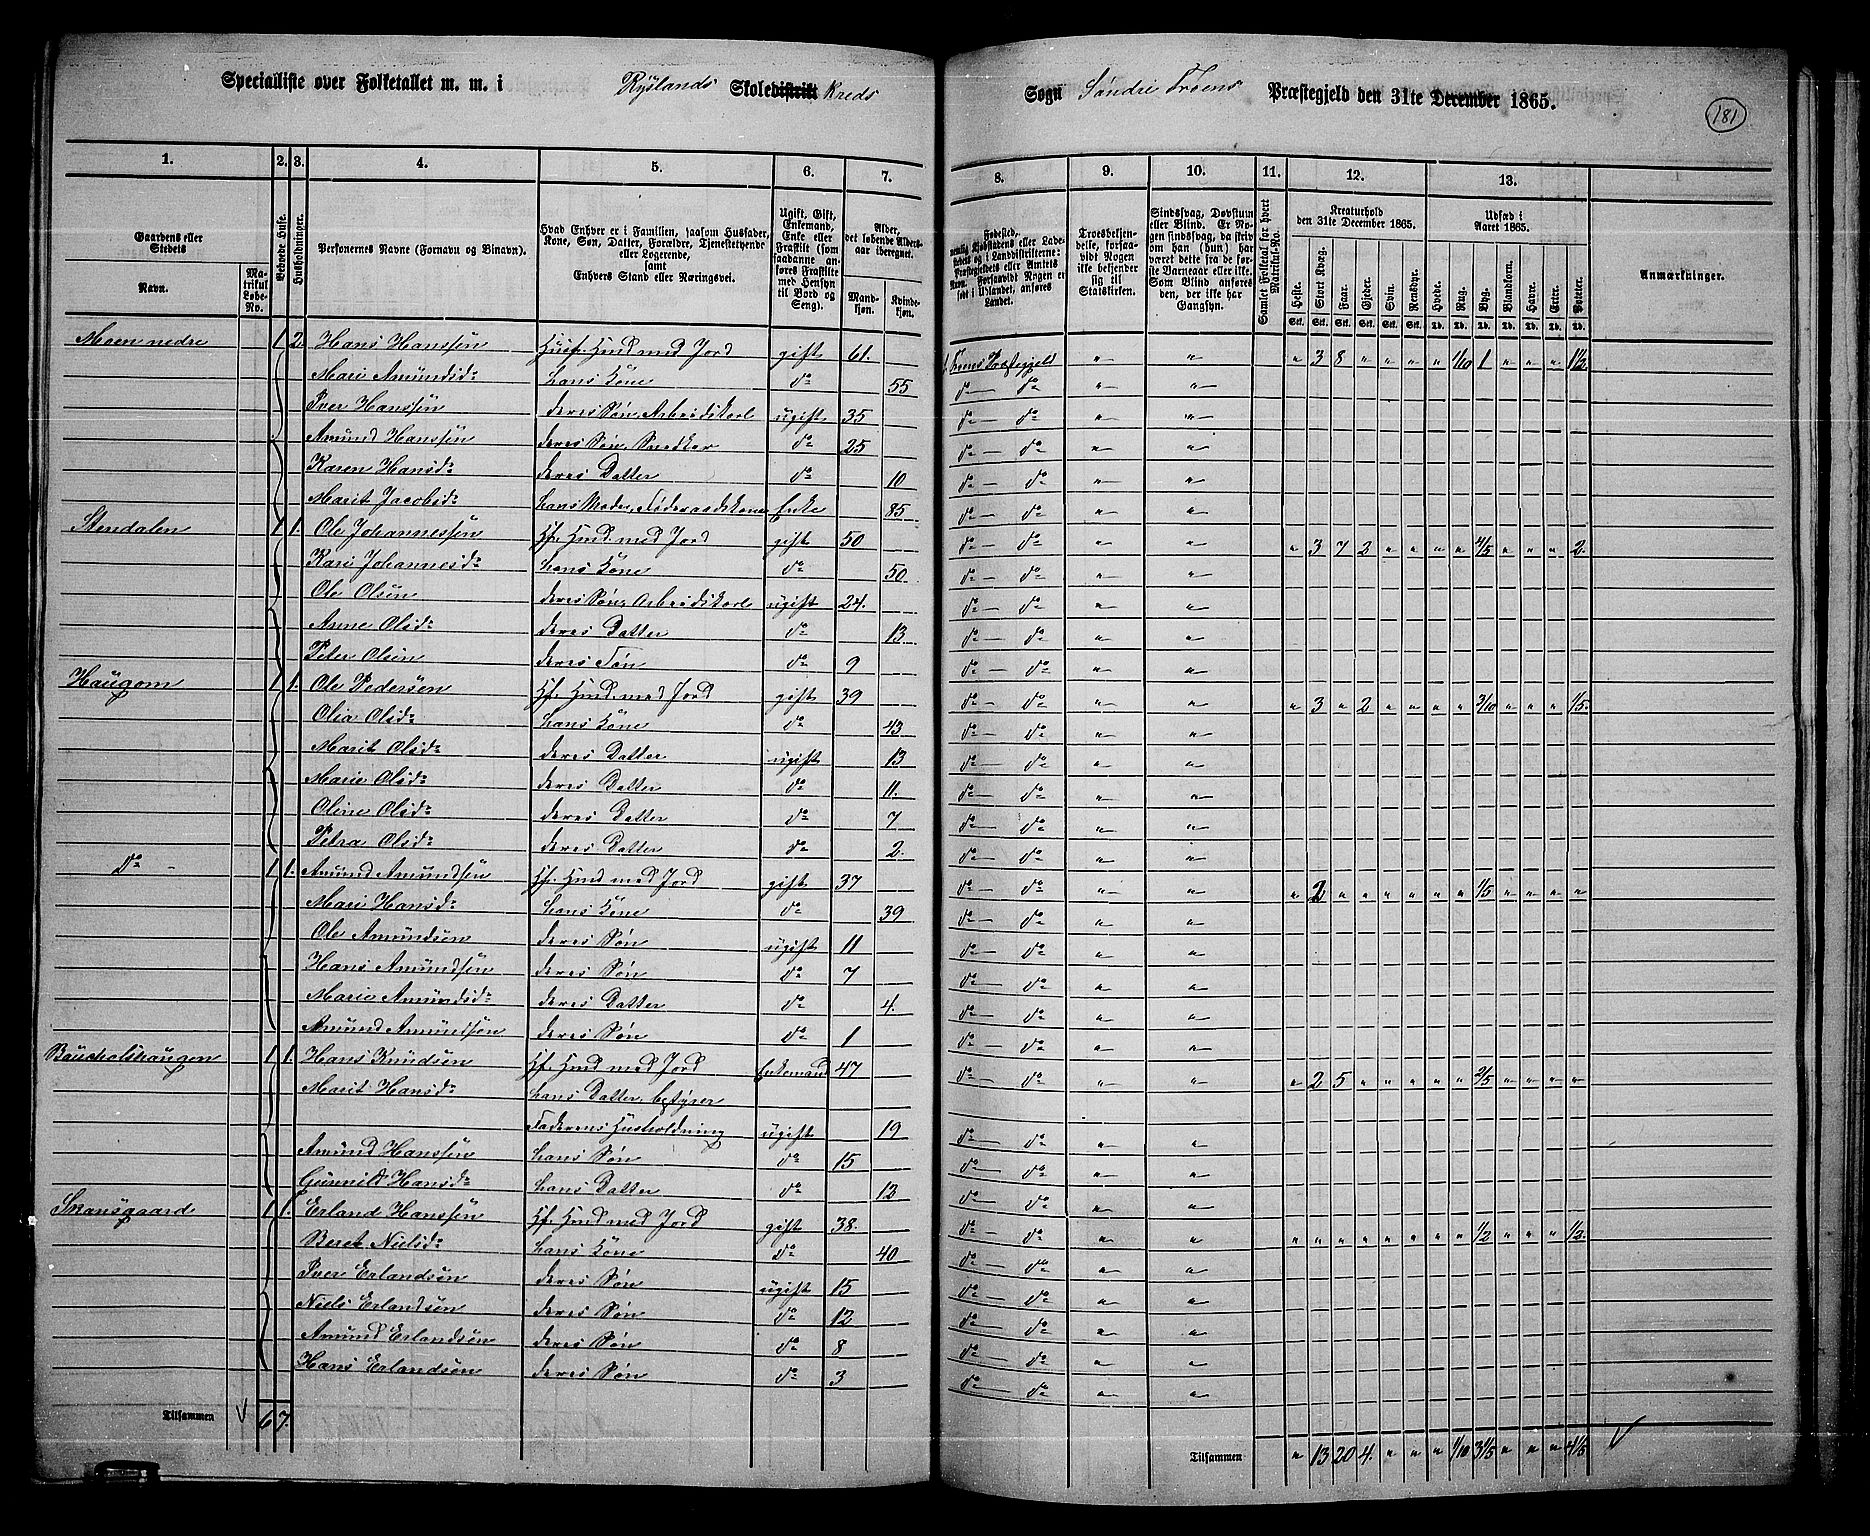 Specialliste over Folketallet m. m. i Ryslands Skoledistrikt Kreds
Sogn Søndre Froens Præstegjeld den 31te December 1865.
181
1. 2. 3. 4. 5. 6. 7. 8. 9. 10. 11. 12. 13.
Gaardens eller Stedets
Navn.
Matrikul Løbe-No.
Beboede Huse.
Husholdninger.
Personernes Navne (Fornavn og Binavn).
Hvad Enhver er i Familien, saasom Husfader, Kone, Søn, Datter, Forældre, Tjenestetyende eller Logerende, samt Enhvers Stand eller Næringsvei.
Ugift, Gift, Enkemand, Enke eller Fraskilt (som saadanne anføres Fraskilte med Hensyn til Bord og Seng).
Alder, det løbende Aldersaar iberegnet.
Mandkjøn. Kvindekjøn.
Trosbekjendelse, forsaavidt Nogen ikke bekjender sig til Statskirken.
Sindssvag, Døvstum eller Blind. Er Nogen sindssvag, da skriv om han (hun) har været dette fra de første Barneaar eller ikke. Som Blind anføres den, der ikke har Gangsyn.
Samlet Folketal for hvert Matrikul-No.
Kreaturhold den 31te December 1865.
Heste. Stort Kvæg. Faar. Gjeder. Svin. Rensdyr.
Udsæd i Aaret 1865.
Hvede. Rug. Byg. Blandkorn. Havre. Erter. Poteter.
Anmærkninger.
Moen nedre 1 2 Hans Hanssen Husf. Hmd med Jord gift 61. Froens Præstegjeld " " " 3 8 " " " " 1/10 1 " " " 1 1/2
Mari Amundsd: hans Kone do 55 do do " "
Iver Hanssen deres Søn, Arbeidskarl ugift 35 do do " "
Amund Hanssen deres Søn Snedker do 25 do do " "
Karen Hansd: deres Datter do 10 do do " "
Marit Jacobsd: hans Moder, Føderaadskone Enke 85 do do " "
Stendalen 1 1. Ole Johannessen Hf. Hmd. med Jord gift 50 do do " " " 3 7 2 " " " " 4/5 " " " 2.
Kari Johannesd: hans Kone do 50 do do " "
Ole Olsen deres Søn, Arbeidskarl ugift 24. do do " "
Anne Olsd: deres Datter do 13 do do " "
Peter Olsen deres Søn do 9 do do " "
Haugom 1 1. Ole Pedersen Hf. Hmd. med Jord gift 39 do do " " " 3 " 2 " " " " 3/10 " " " 1/5.
Olia Olsd: hans Kone do 43 do do " "
Marit Olsd: deres Datter ugift 13 do do " "
Marie Olsd: deres Datter do 11. do do " "
Oline Olsd: deres Datter do 7 do do " "
Petra Olsd: deres Datter do 2. do do " "
do - 1 1. Amund Amundsen Hf. Hmd med Jord gift 37 do do " " " 2 " " " " " " 1/5 " " " "
Mari Hansd: hans Kone do 39 do do " "
Ole Amundsen deres Søn ugift 11 do do " "
Hans Amundsen deres Søn do 7 do do " "
Marie Amundsd: deres Datter do 4. do do " "
Amund Amundsøn deres Søn do 1 do do " "
1 1 Hans Knudsen Hf. Hmd med Jord Enkemand 47 do do " " " 2 5 " " " " " 2/5 " " " "
Marit Hansd: hans Datter, bestyrer
Faderens Husholdning ugift 19 do do " "
Amund Hanssen hans Søn do 15 do do " "
Gunnild Hansd: hans Datter do 12 do do " "
Skansgaard 1 1. Erland Hanssen Hf. Hmd med Jord gift 38. do do " " " " " " " " " " 1/2 " " " 1/2.
Beret Nielsd: hans Kone do 40 do do " "
Iver Erlandsen deres Søn ugift 15 do do " "
Niels Erlandsen deres Søn do 12 do do " "
Amund Erlandsen deres Søn do 8 do do " "
Hans Erlandsen deres Søn do 3 do do " "
Tilsammen 6 7.
Tilsammen " 13 20 4. " " " 1/10 3 1/5 " " " 4 1/5